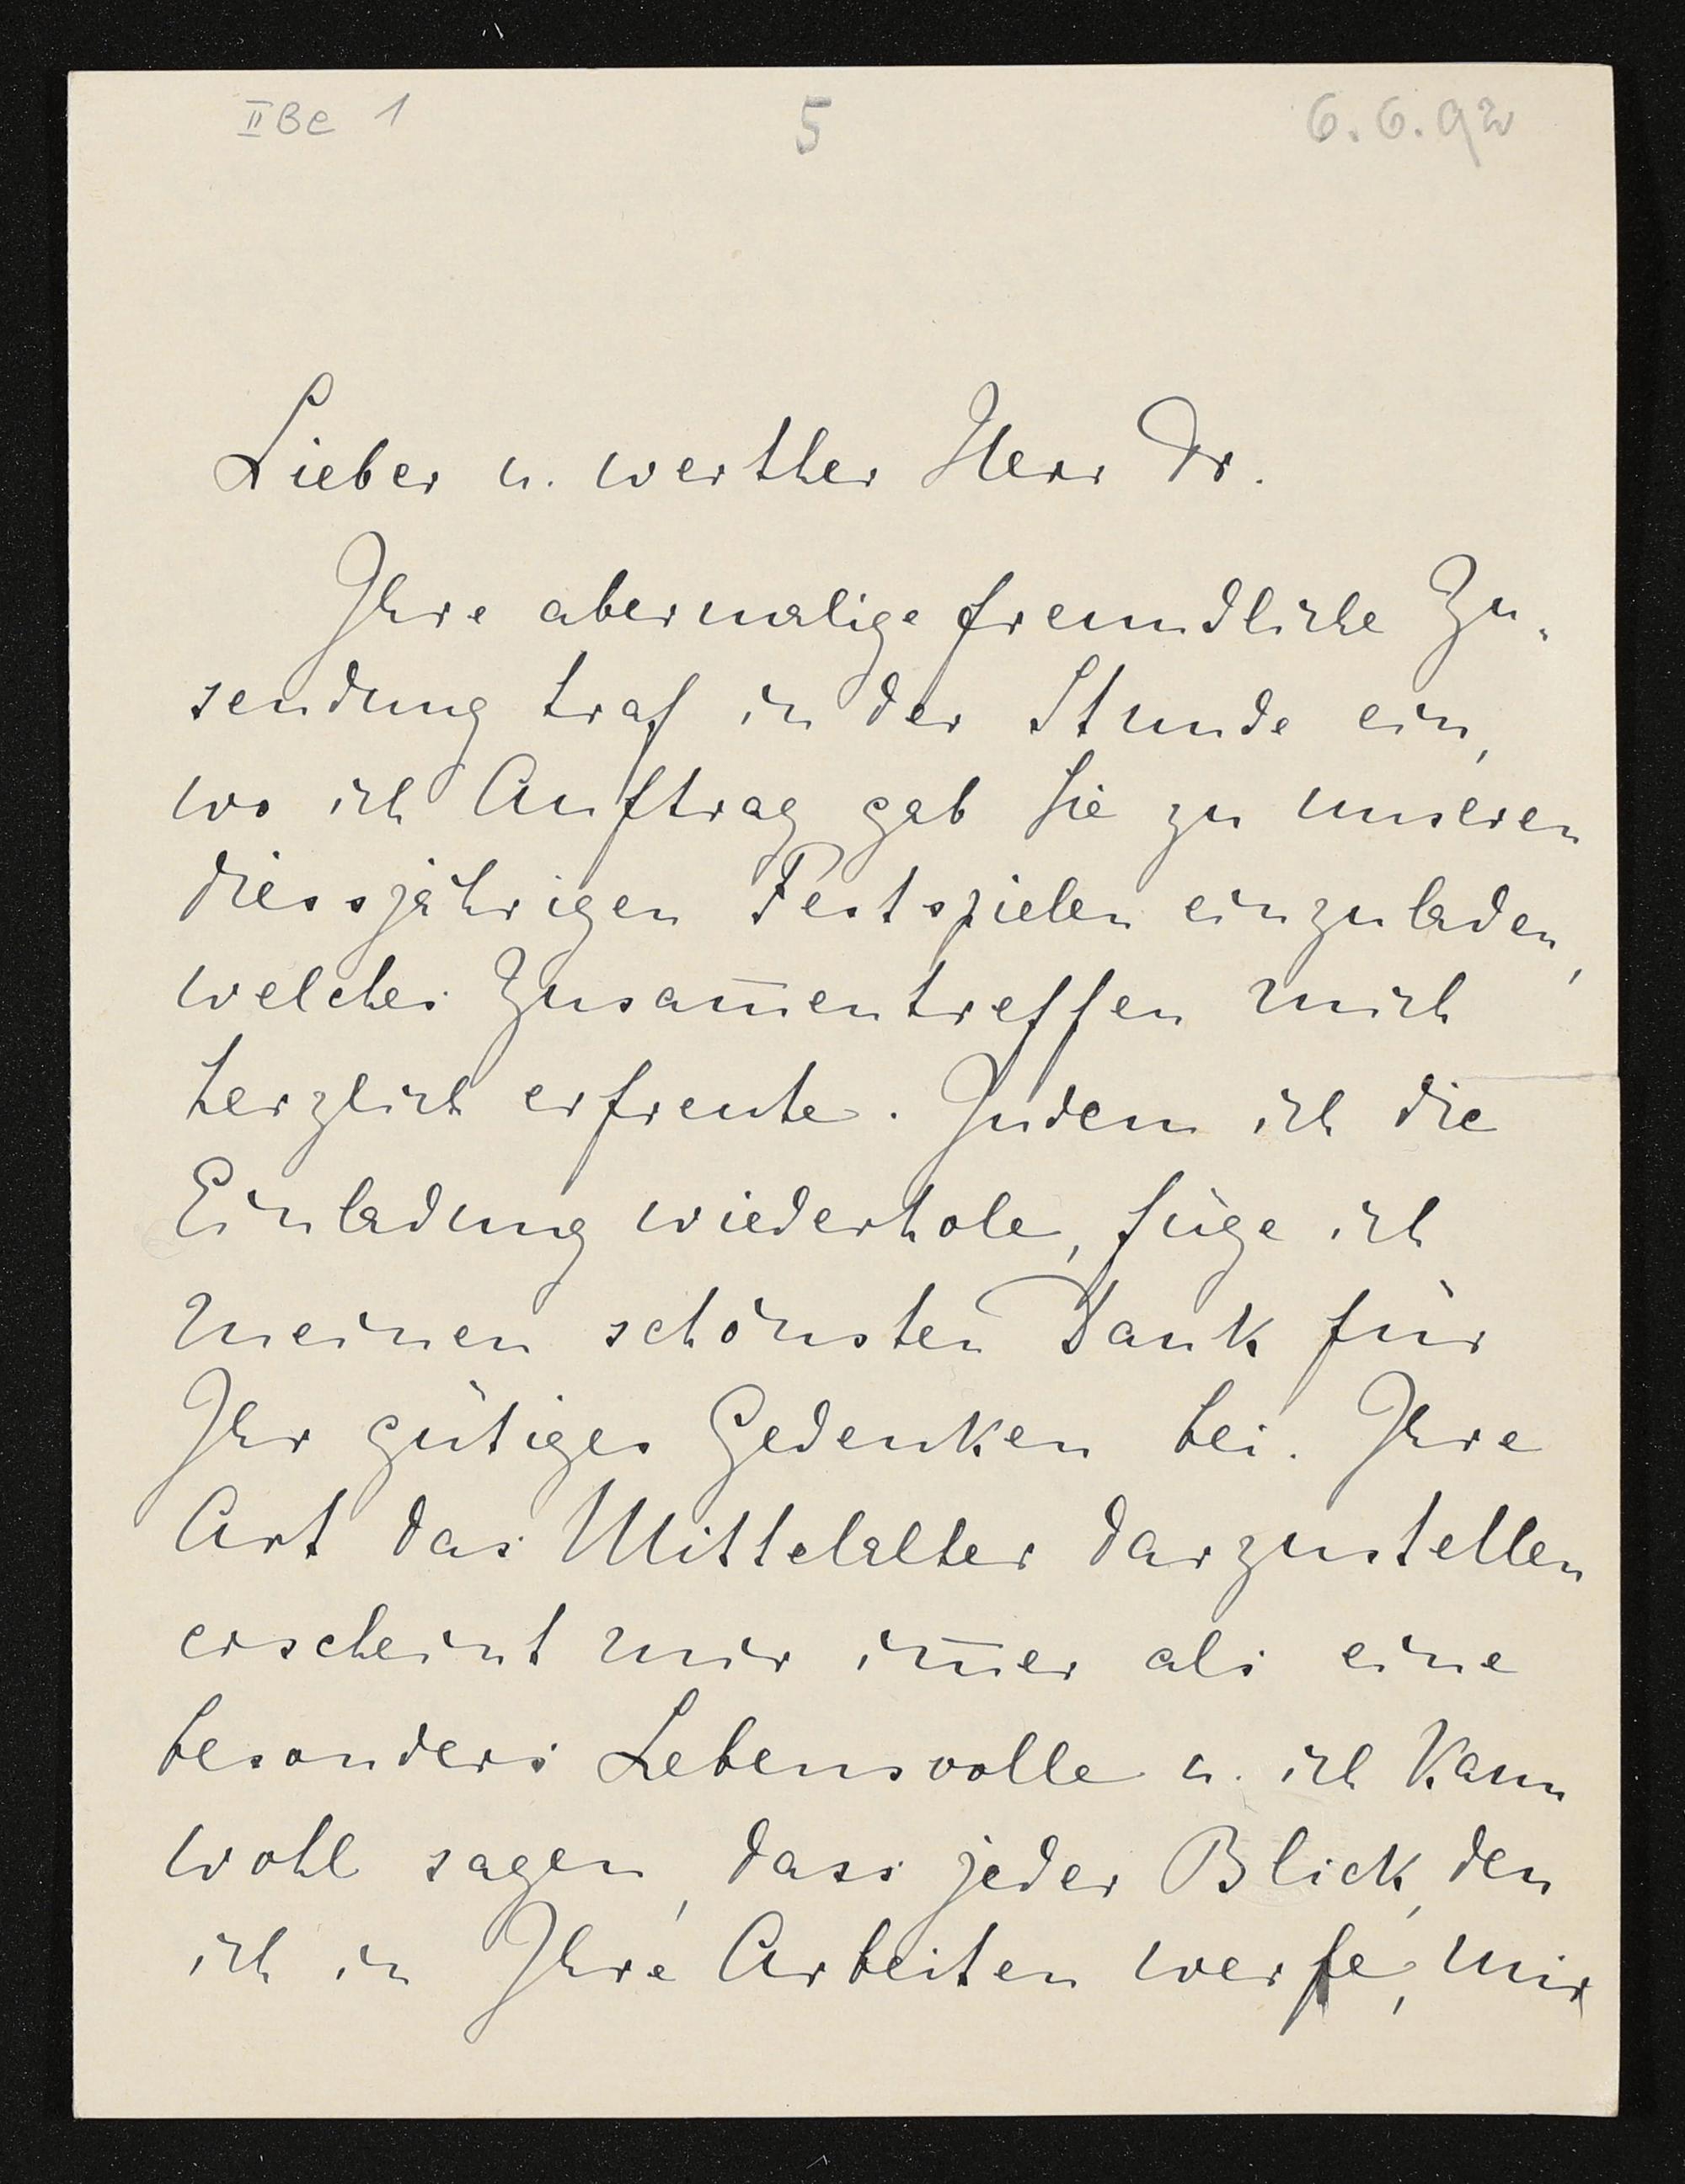 II Be 1 5 6.6.92
Lieber u. werther Herr Dr.
Ihre abermalige freundliche Zu-
sendung traf in der Stunde ein,
wo ich Auftrag gab Sie zu unseren
diessjährigen Festspielen einzuladen,
welches Zusam̅entreffen mich
herzlich erfreute. Indem ich die
Einladung wiederhole, füge ich
meinen schönsten Dank für
Ihr gütiges Gedenken bei. Ihre
Art das Mittelalter darzustellen
erscheint mir im̅er als eine
besonders Lebensvolle u. ich kann
wohl sagen, dass jeder Blick, den
ich in Ihre Arbeiten werfe, mir